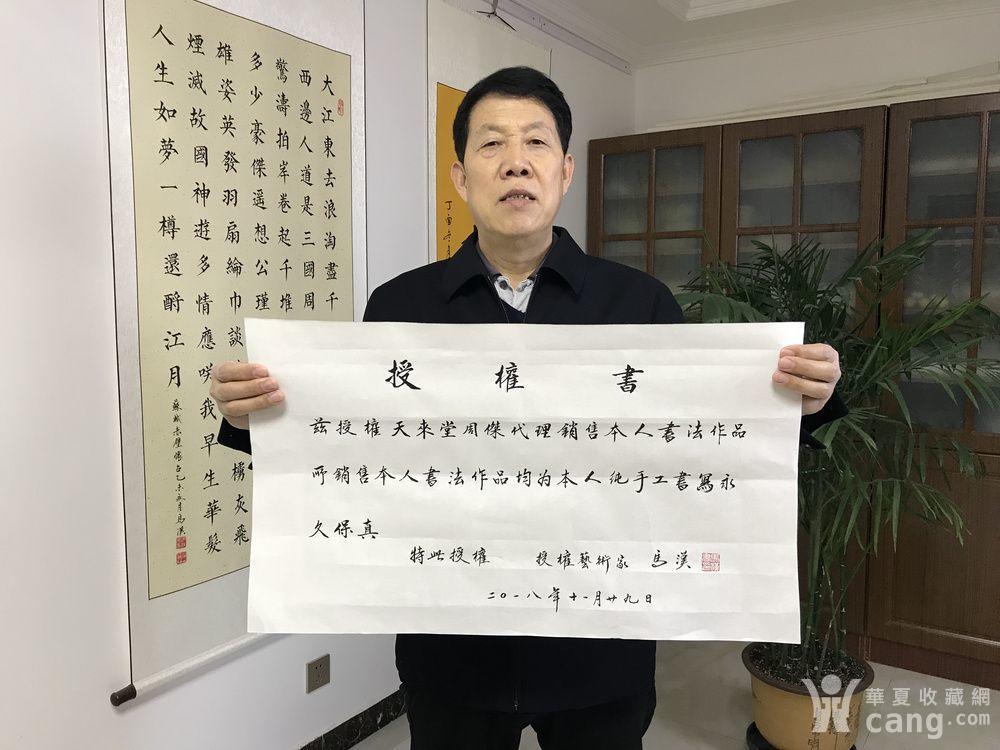 大江東去浪淘盡千
西邊人道是三國周
驚濤拍岸卷起千堆
多少豪傑遥想公瑾
雄姿英發羽扇綸巾談
櫓灰飛
煙滅故國神遊多情應咲我早生華髮
人生如夢一樽還酹江月
蘇軾赤壁懷古乙未秋月馬漢
丁酉冬
授權書
兹授權天來堂周傑代理銷售本人書法作品
所銷售本人書法作品均为本人純手工書寫永
久保真
特此授權 授權藝術家 馬漢
二〇一八年十一月廿九日
華夏收藏網
cang.com